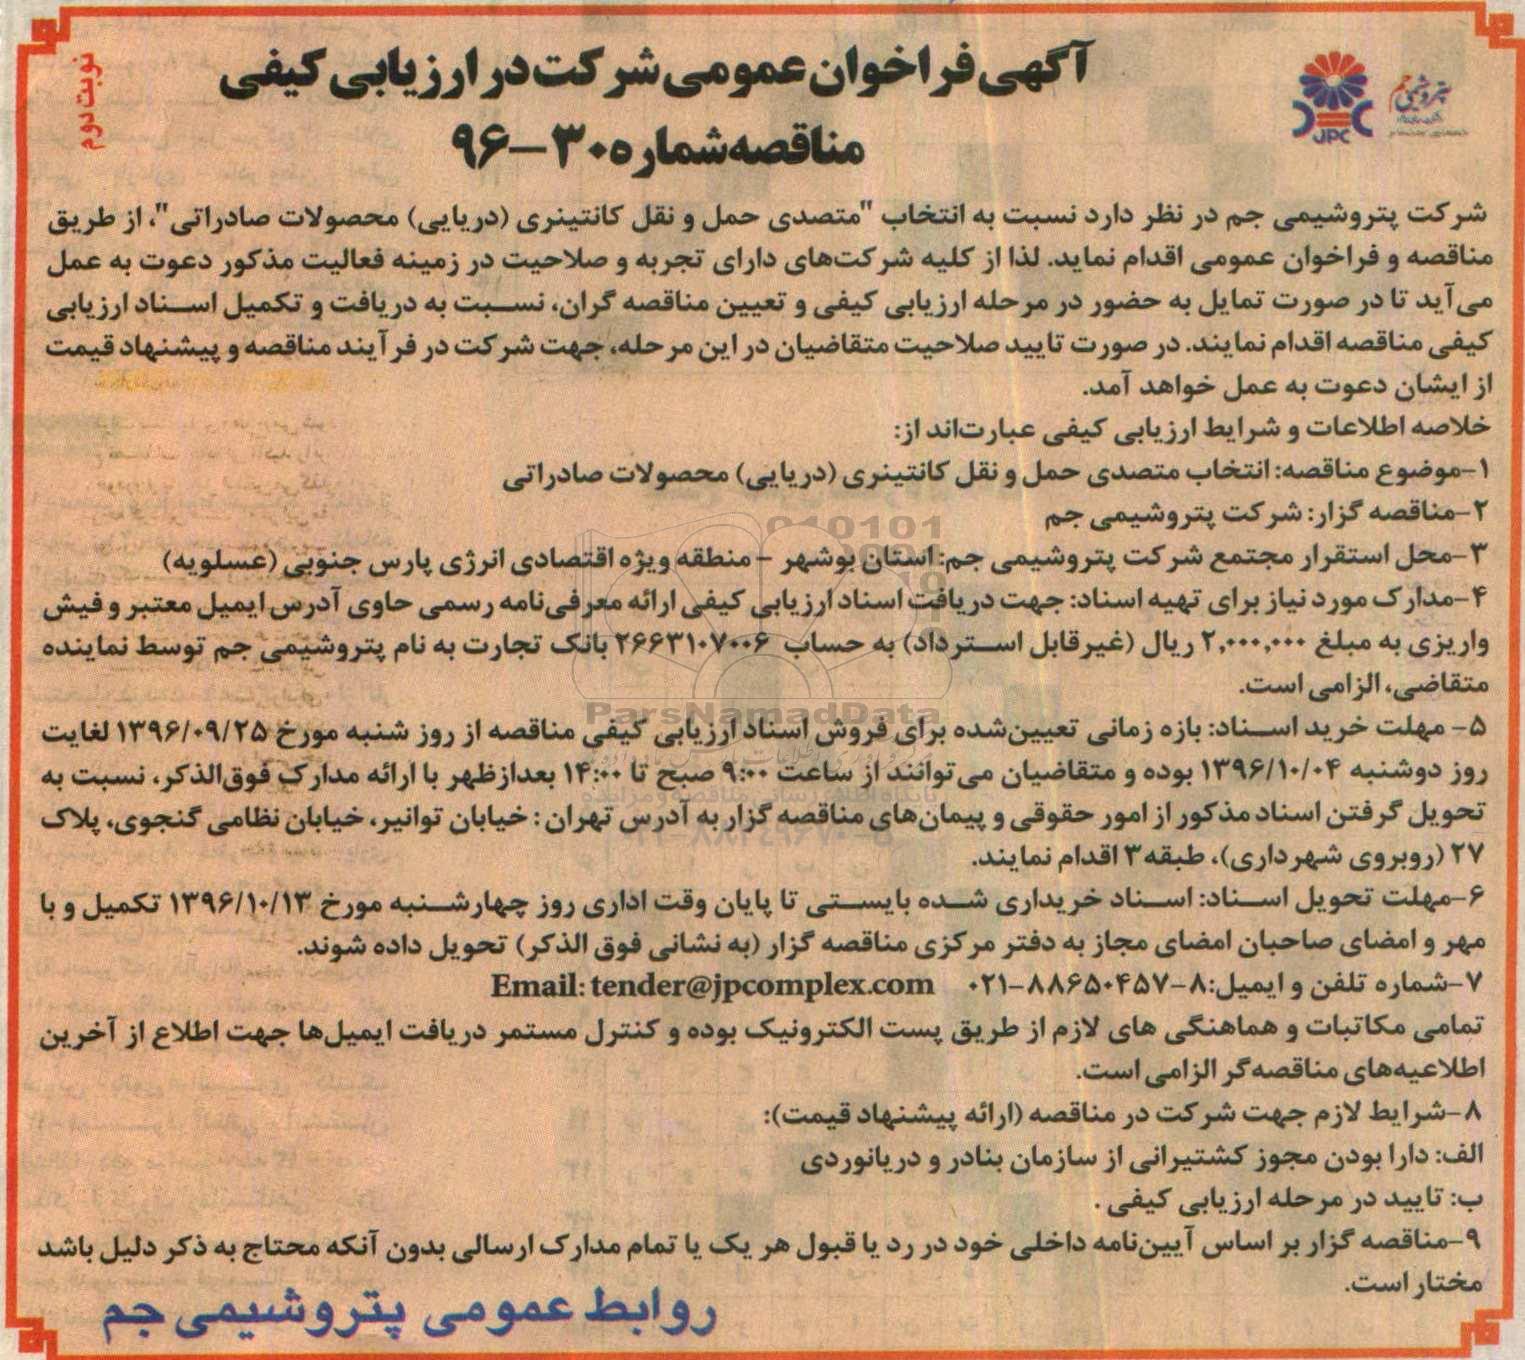 نوبت دوم
آگهی فراخوان عمومی شرکت در ارزیابی کیفی
مناقصه شماره ۳۰-۹۶
پتروشیمی جم
JPC
شرکت پتروشیمی جم در نظر دارد نسبت به انتخاب "متصدی حمل و نقل کانتینری (دریایی) محصولات صادراتی"، از طریق
مناقصه و فراخوان عمومی اقدام نماید. لذا از کلیه شرکت‌های دارای تجربه و صلاحیت در زمینه فعالیت مذکور دعوت به عمل
می‌آید تا در صورت تمایل به حضور در مرحله ارزیابی کیفی و تعیین مناقصه گران، نسبت به دریافت و تکمیل اسناد ارزیابی
کیفی مناقصه اقدام نمایند. در صورت تایید صلاحیت متقاضیان در این مرحله، جهت شرکت در فرآیند مناقصه و پیشنهاد قیمت
از ایشان دعوت به عمل خواهد آمد.
خلاصه اطلاعات و شرایط ارزیابی کیفی عبارت‌اند از:
۱-موضوع مناقصه: انتخاب متصدی حمل و نقل کانتینری (دریایی) محصولات صادراتی
۲-مناقصه گزار: شرکت پتروشیمی جم
۳-محل استقرار مجتمع شرکت پتروشیمی جم: استان بوشهر - منطقه ویژه اقتصادی انرژی پارس جنوبی (عسلویه)
۴-مدارک مورد نیاز برای تهیه اسناد: جهت دریافت اسناد ارزیابی کیفی ارائه معرفی‌نامه رسمی حاوی آدرس ایمیل معتبر و فیش
واریزی به مبلغ ۲,۰۰۰,۰۰۰ ریال (غیرقابل استرداد) به حساب ۲۶۶۳۱۰۷۰۰۶ بانک تجارت به نام پتروشیمی جم توسط نماینده
متقاضی، الزامی است.
۵- مهلت خرید اسناد: بازه زمانی تعیین‌شده برای فروش اسناد ارزیابی کیفی مناقصه از روز شنبه مورخ ۱۳۹۶/۰۹/۲۵ لغایت
روز دوشنبه ۱۳۹۶/۱۰/۰۴ بوده و متقاضیان می‌توانند از ساعت ۹:۰۰ صبح تا ۱۴:۰۰ بعدازظهر با ارائه مدارک فوق‌الذکر، نسبت به
تحویل گرفتن اسناد مذکور از امور حقوقی و پیمان‌های مناقصه گزار به آدرس تهران : خیابان توانیر، خیابان نظامی گنجوی، پلاک
۲۷ (روبروی شهرداری)، طبقه۳ اقدام نمایند.
۶-مهلت تحویل اسناد: اسناد خریداری شده بایستی تا پایان وقت اداری روز چهارشنبه مورخ ۱۳۹۶/۱۰/۱۳ تکمیل و با
مهر و امضای صاحبان امضای مجاز به دفتر مرکزی مناقصه گزار (به نشانی فوق الذکر) تحویل داده شوند.
۷-شماره تلفن و ایمیل:۸-۸۸۶۵۰۴۵۷-۰۲۱ Email: tender@jpcomplex.com
تمامی مکاتبات و هماهنگی های لازم از طریق پست الکترونیک بوده و کنترل مستمر دریافت ایمیل‌ها جهت اطلاع از آخرین
اطلاعیه‌های مناقصه‌گر الزامی است.
۸-شرایط لازم جهت شرکت در مناقصه (ارائه پیشنهاد قیمت):
الف: دارا بودن مجوز کشتیرانی از سازمان بنادر و دریانوردی
ب: تایید در مرحله ارزیابی کیفی .
۹-مناقصه گزار بر اساس آیین‌نامه داخلی خود در رد یا قبول هر یک یا تمام مدارک ارسالی بدون آنکه محتاج به ذکر دلیل باشد
مختار است.
روابط عمومی پتروشیمی جم
ParsNamadData